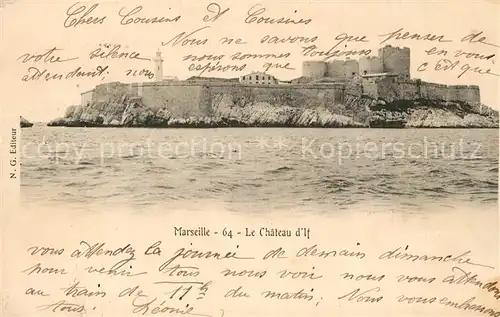 Chers Cousins et Cousines
Nous ne savons que penser de
votre silence nous sommes toujours en vous
attendant. nous espérons que c'est que
N. G. Editeur
copyright by www.Kropshiver.com
Marseille - 64 - Le Château d'If
vous attendez la journée de demain dimanche
pour venir tous nous voir nous vous attendons
au train de 11h du matin. Nous vous embrassons
tous. Léonie